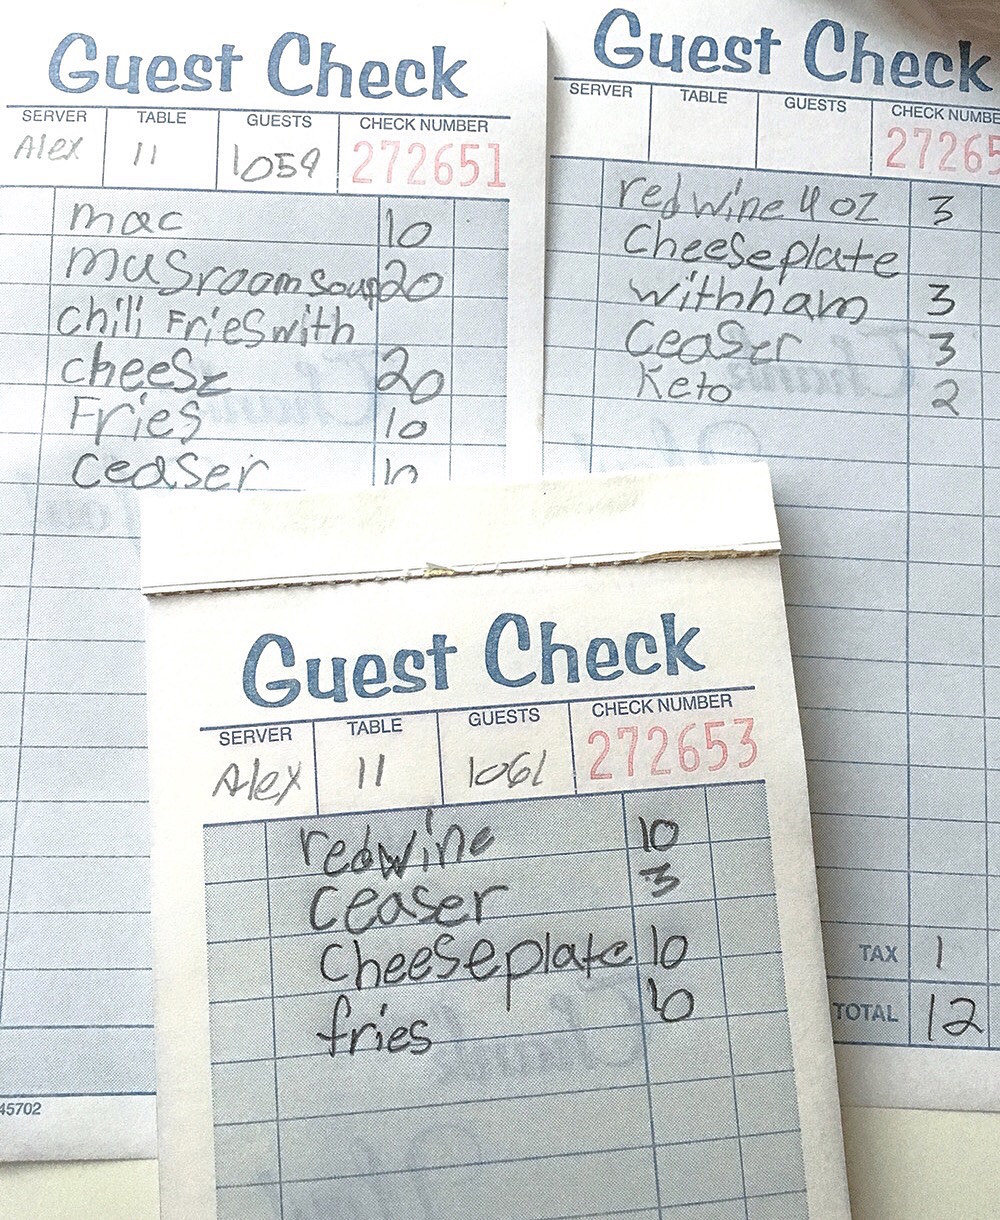 Guest Check
SERVER TABLE GUESTS CHECK NUMBER
Alex 11 1059 272651
mac 10
musroom soup 20
chili Fries with
cheese 20
Fries 10
ceaser
45702
Guest Check
SERVER TABLE GUESTS CHECK NUMBE
27265
red wine 4 oz 3
Cheese plate
with ham 3
Ceaser 3
Keto 2
TAX 1
TOTAL 12
Guest Check
SERVER TABLE GUESTS CHECK NUMBER
Alex 11 1061 272653
red wine 10
ceaser 3
cheese plate 10
fries 10